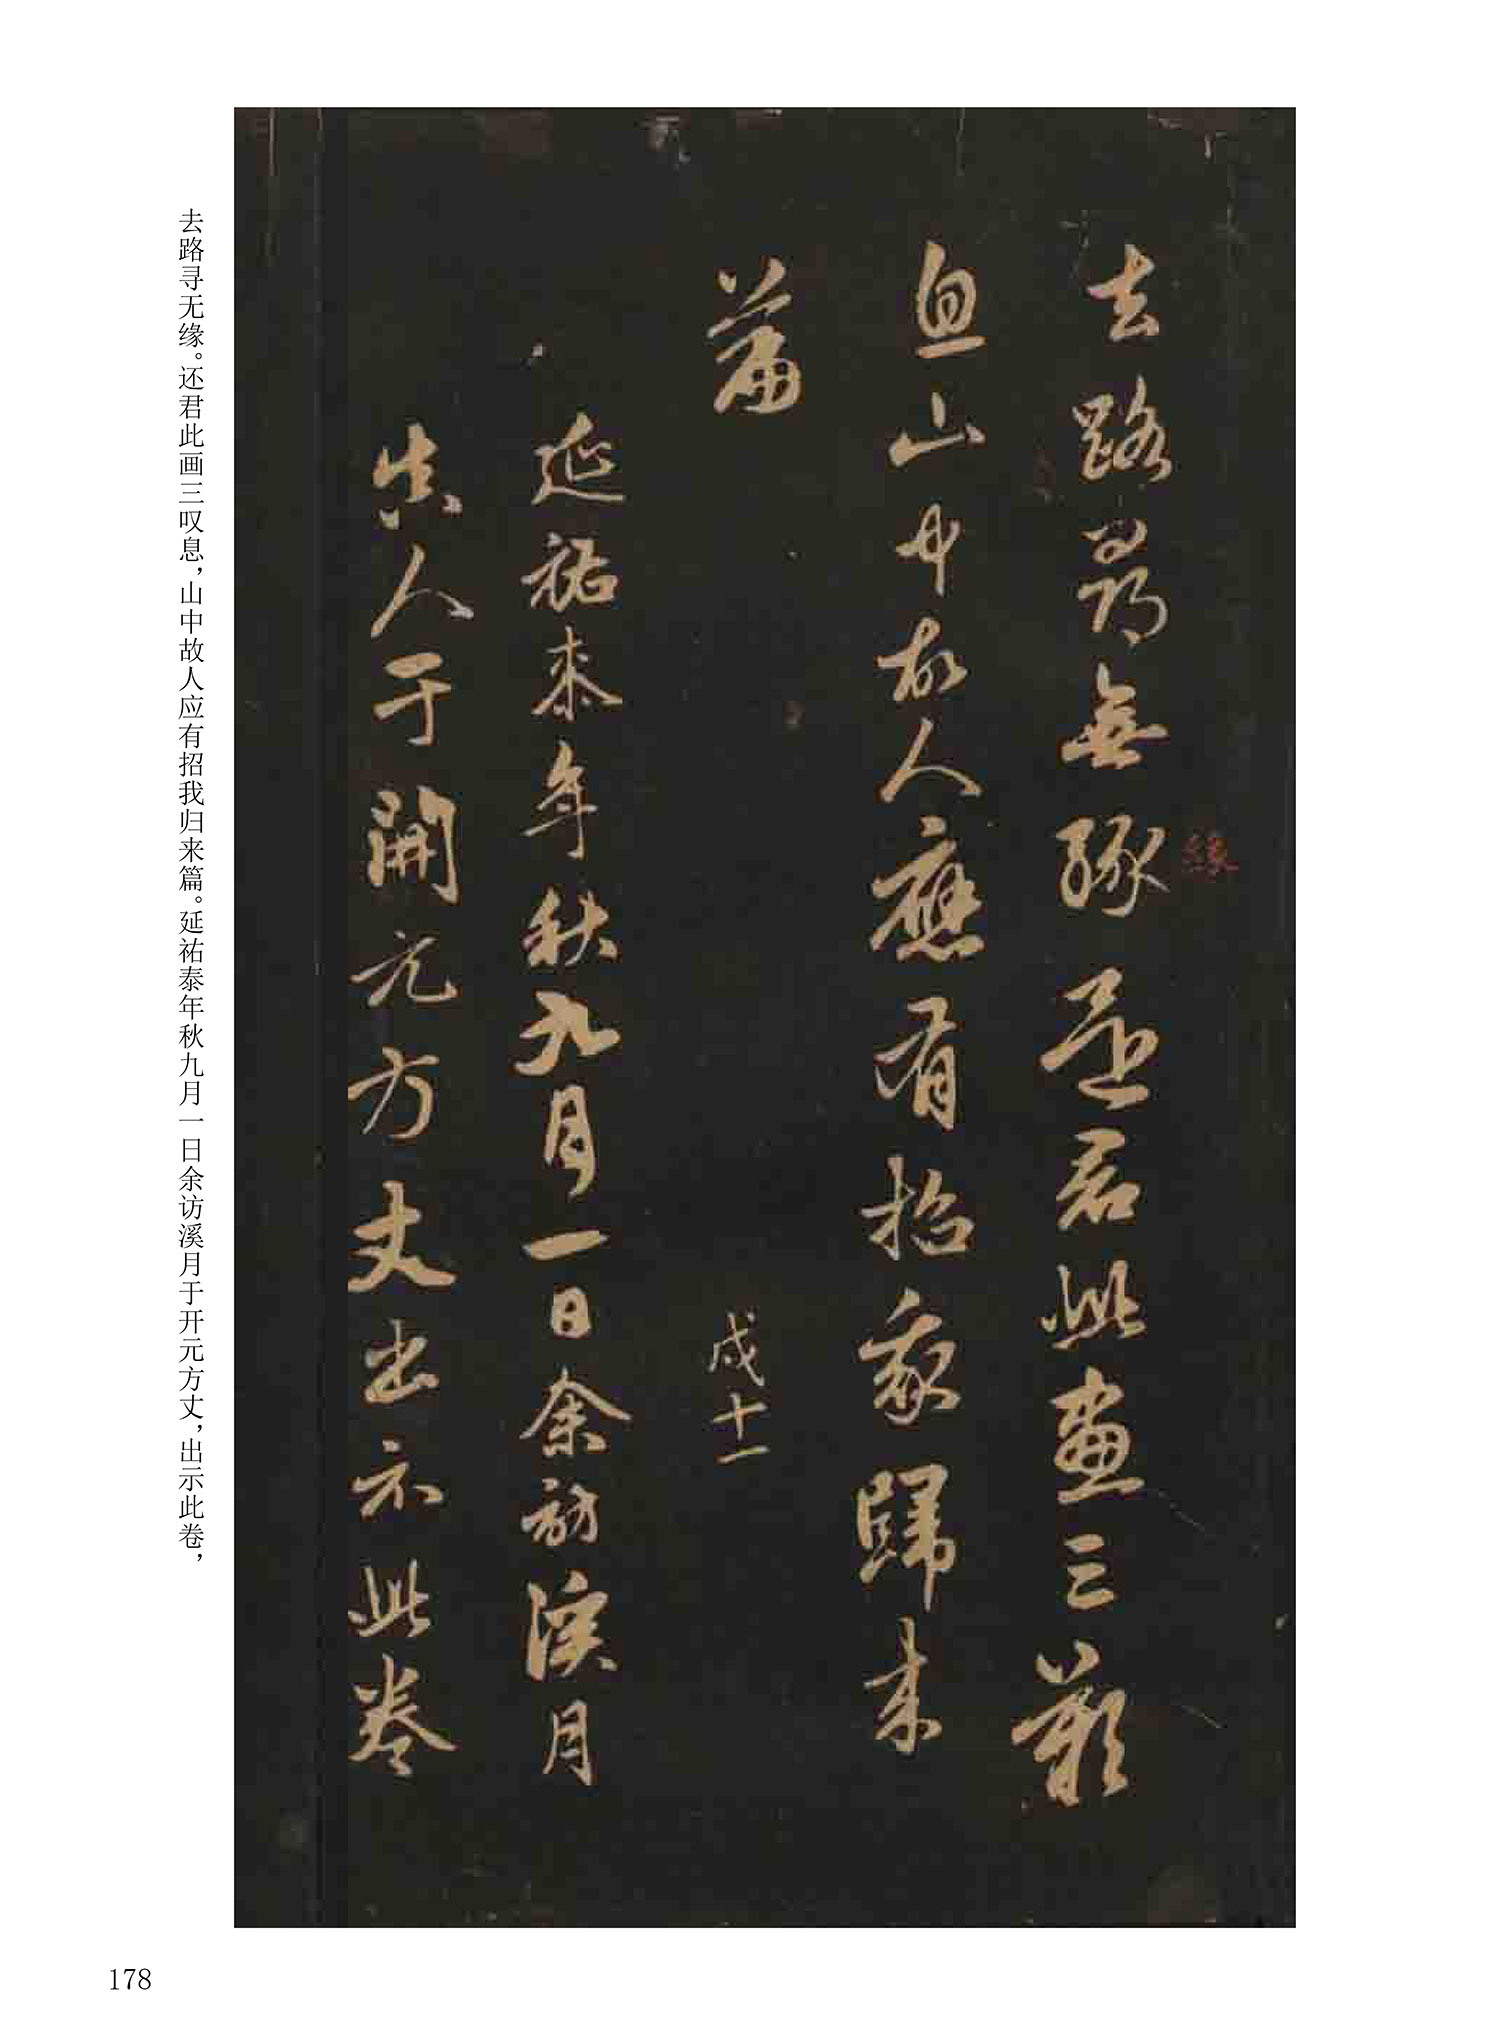 去路尋無緣還君此畫三歎
緣
息山中故人應有招我歸来
篇
戍十一
延祐泰年秋九月一日余訪溪月
真人于開元方丈出示此卷
去路寻无缘。还君此画三叹息，山中故人应有招我归来篇。延祐泰年秋九月一日余访溪月于开元方丈，出示此卷，
178